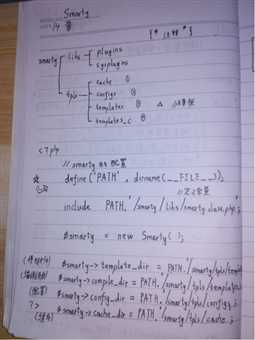 Smarty
14 章
{* 注释 *}
smarty libs plugins
sysplugins
tpls cache ①
configs ②
templates ③ △
templates_c ④
<?php
// smarty 的 配置
define('PATH', dirname(__FILE__));
// 定义常量
include PATH.'/smarty/libs/smarty.class.php';
$smarty = new Smarty();
$smarty->template_dir = PATH.'/smarty/tpls/templ
$smarty->compile_dir = PATH.'/smarty/tpls/templates
(配置) $smarty->config_dir = PATH.'/smarty/tpls/configs';
?> (缓存) $smarty->cache_dir = PATH.'/smarty/tpls/cache';